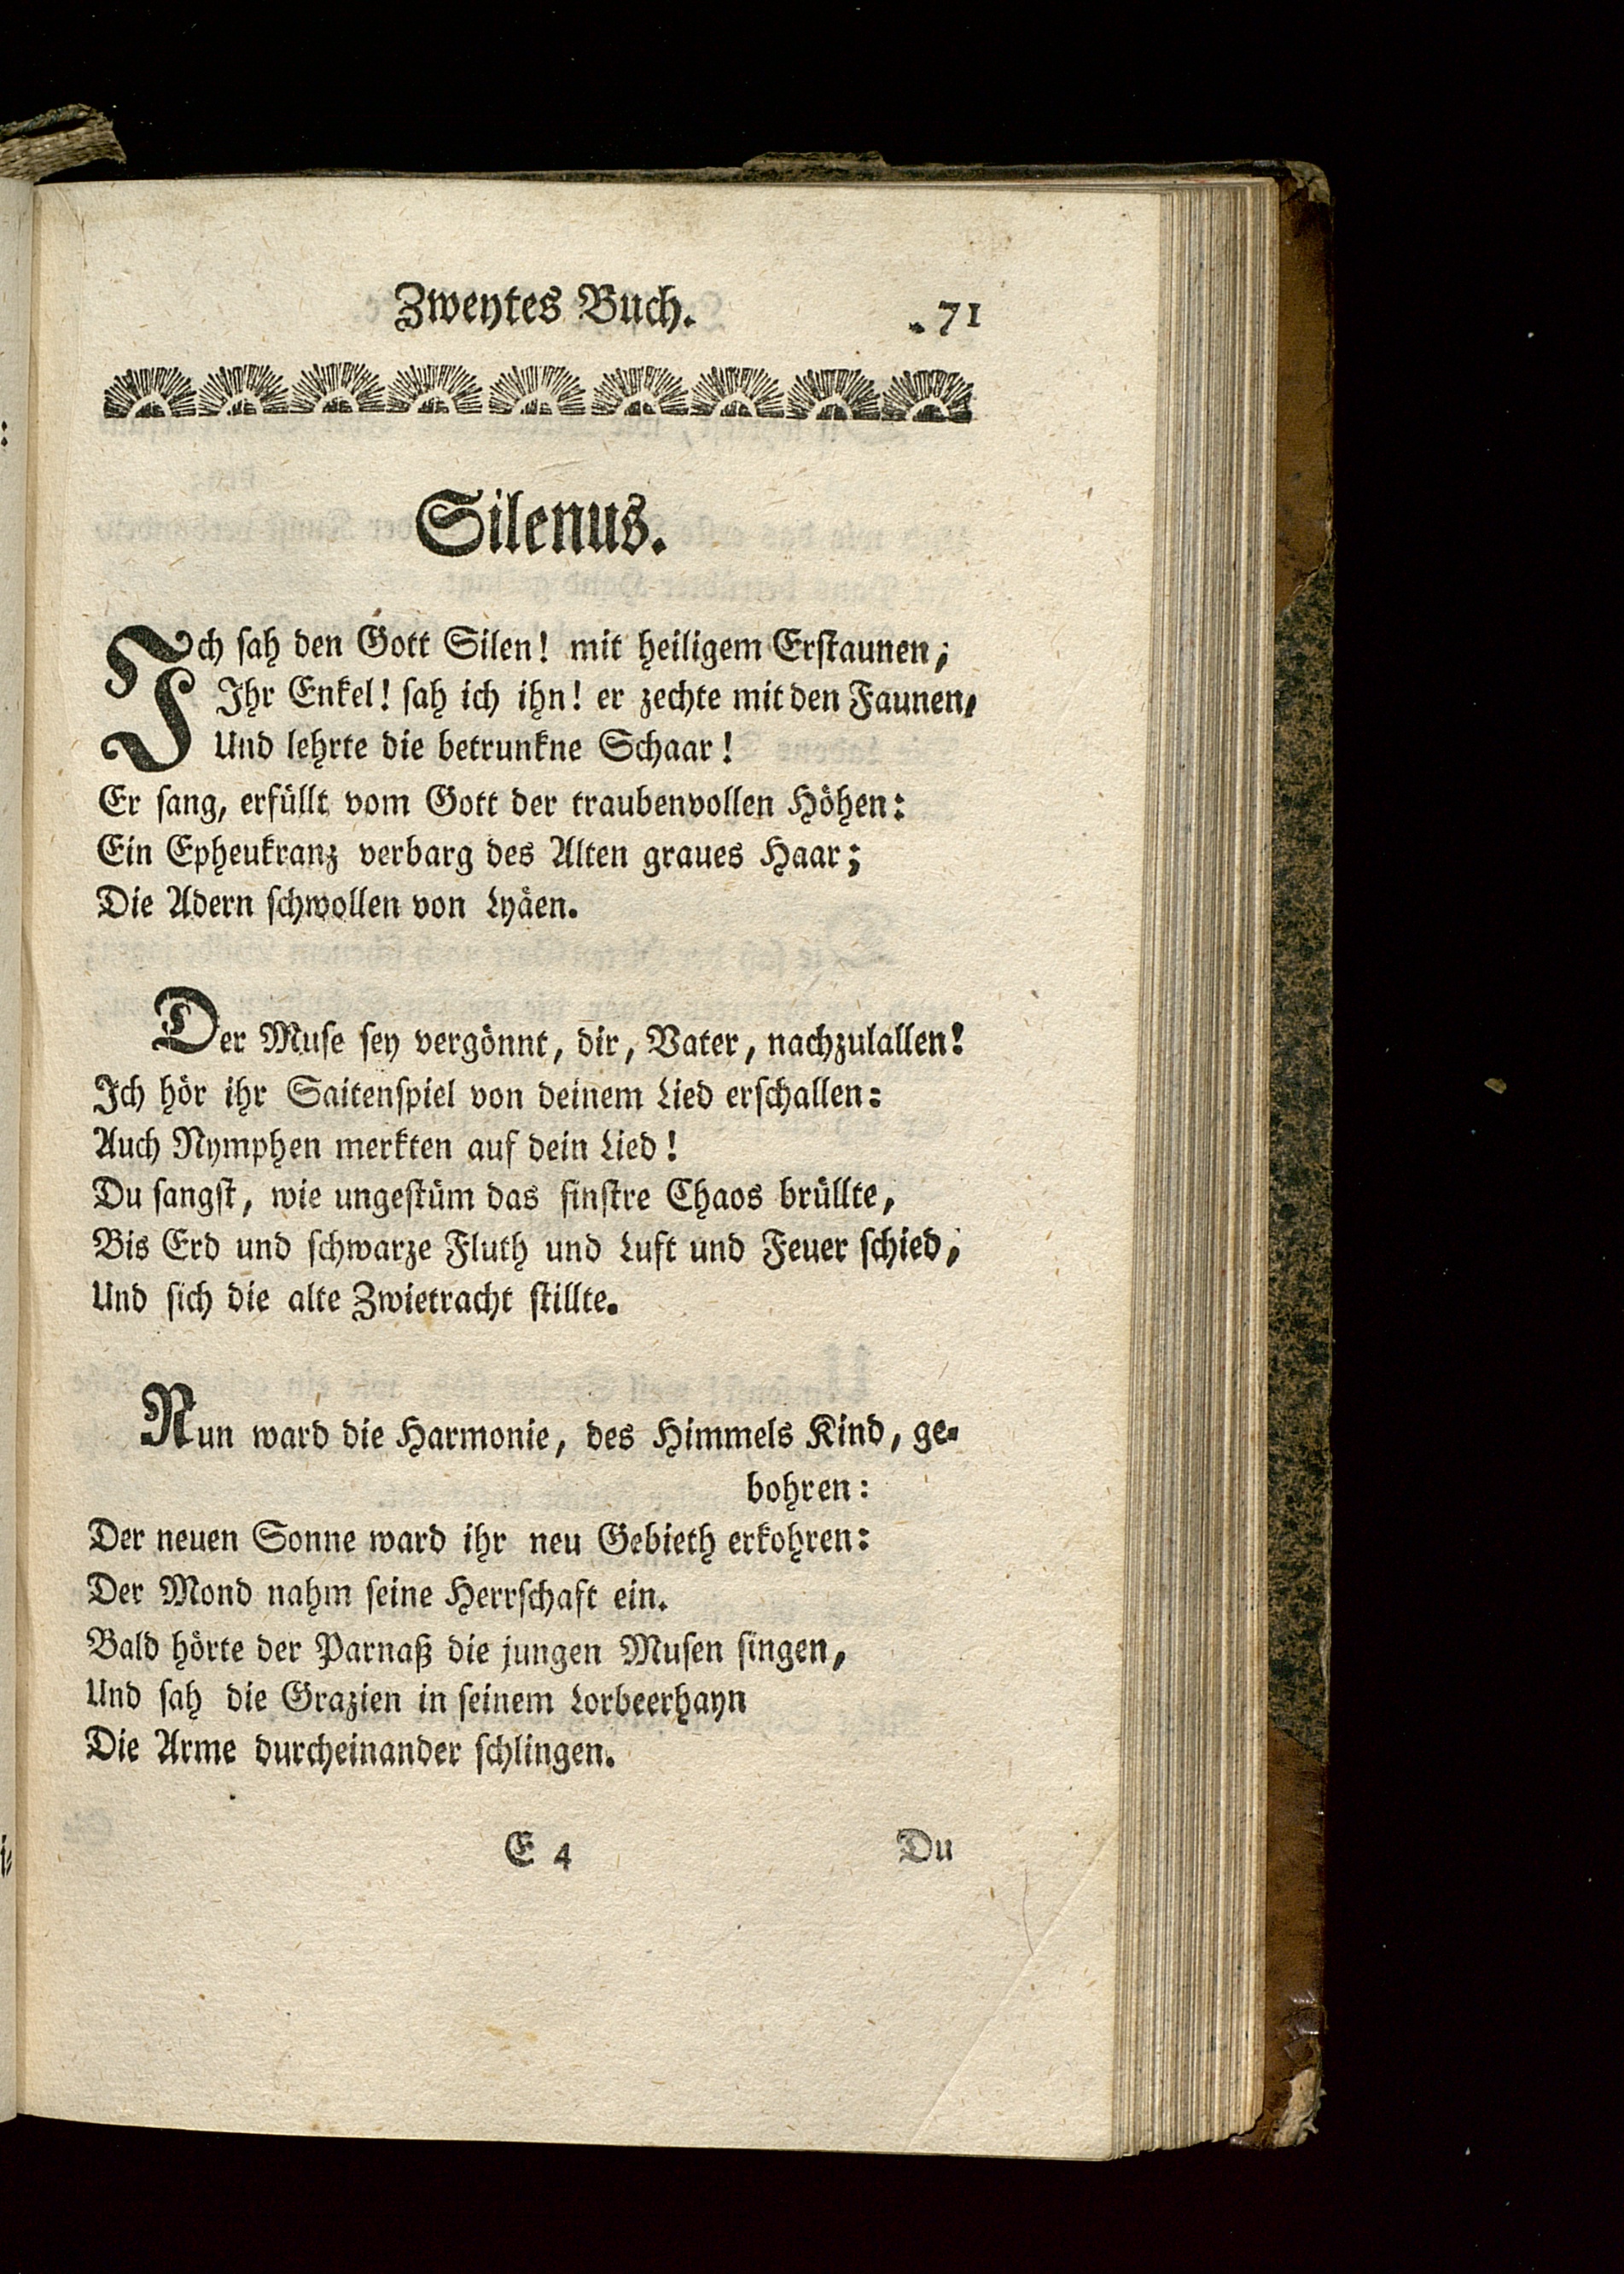 Zweytes Buch. 71
Silenus.
Ich ſah den Gott Silen! mit heiligem Erſtaunen,
Ihr Enkel! ſah ich ihn! er zechte mit den Faunen,
Und lehrte die betrunkne Schaar!
Er ſang, erfüllt vom Gott der traubenvollen Höhen:
Ein Epheukranz verbarg des Alten graues Haar;
Die Adern ſchwollen von Lyäen.
Der Muſe ſey vergönnt, dir, Vater, nachzulallen!
Ich hör ihr Saitenſpiel von deinem Lied erſchallen:
Auch Nymphen merkten auf dein Lied!
Du ſangſt, wie ungeſtüm das finſtre Chaos brüllte,
Bis Erd und ſchwarze Fluth und Luft und Feuer ſchied,
Und ſich die alte Zwietracht ſtillte.
Nun ward die Harmonie, des Himmels Kind, ge-
bohren:
Der neuen Sonne ward ihr neu Gebieth erkohren:
Der Mond nahm ſeine Herrſchaft ein.
Bald hörte der Parnaß die jungen Muſen ſingen,
Und ſah die Grazien in ſeinem Lorbeerhayn
Die Arme durcheinander ſchlingen.
E 4 Du